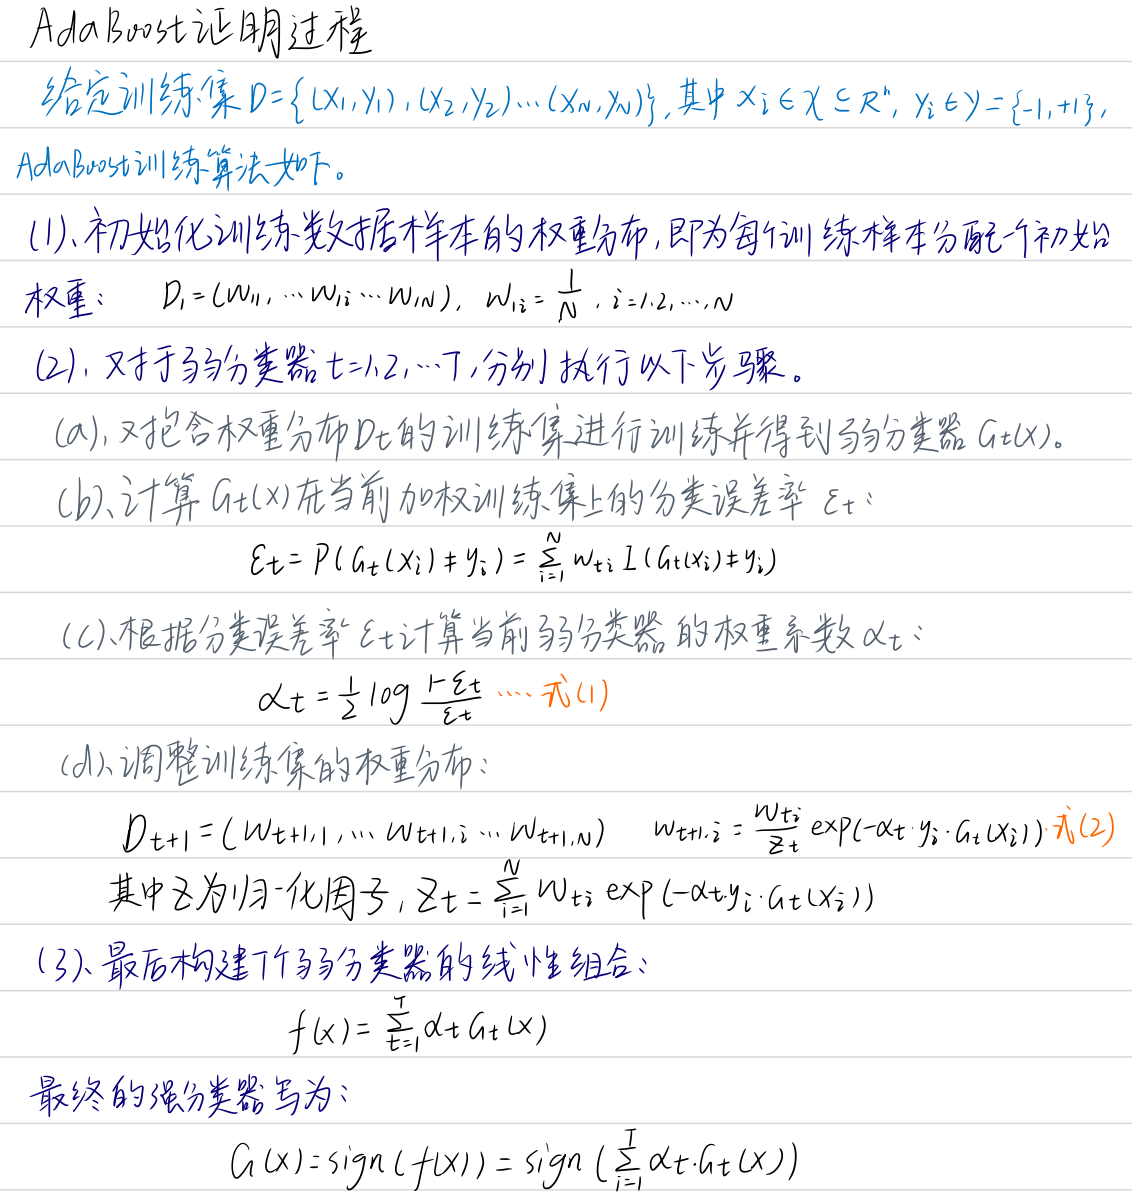 AdaBoost证明过程
给定训练集D={(x₁,y₁),(x₂,y₂)…(x_N,y_N)},其中 xᵢ∈χ⊆Rⁿ, yᵢ∈y={-1,+1},
AdaBoost训练算法如下。
(1)、初始化训练数据样本的权重分布,即为每个训练样本分配一个初始
权重: D₁=(w₁₁,…w₁ᵢ…w₁N), w₁ᵢ=1/N, i=1,2,…,N
(2)、对于弱分类器t=1,2,…T,分别执行以下步骤。
(a)、对包含权重分布Dt的训练集进行训练并得到弱分类器Gt(x)。
(b)、计算Gt(x)在当前加权训练集上的分类误差率 εt:
εt=P(Gt(xᵢ)≠yᵢ)=∑_{i=1}^{N} w_{ti} I(Gt(xᵢ)≠yᵢ)
(c)、根据分类误差率 εt计算当前弱分类器的权重系数αt:
αt=1/2 log (1-εt)/εt ….式(1)
(d)、调整训练集的权重分布:
D_{t+1}=(w_{t+1,1},…w_{t+1,i}…w_{t+1,N}) w_{t+1,i}=w_{ti}/Z_t exp(-αt·yᵢ·Gt(xᵢ))·式(2)
其中Z为归一化因子,Zt=∑_{i=1}^{N} w_{ti} exp(-αt·yᵢ·Gt(xᵢ))
(3)、最后构建T个弱分类器的线性组合:
f(x)=∑_{t=1}^{T} αt Gt(x)
最终的强分类器写为:
G(x)=sign(f(x))=sign(∑_{i=1}^{T} αt·Gt(x))